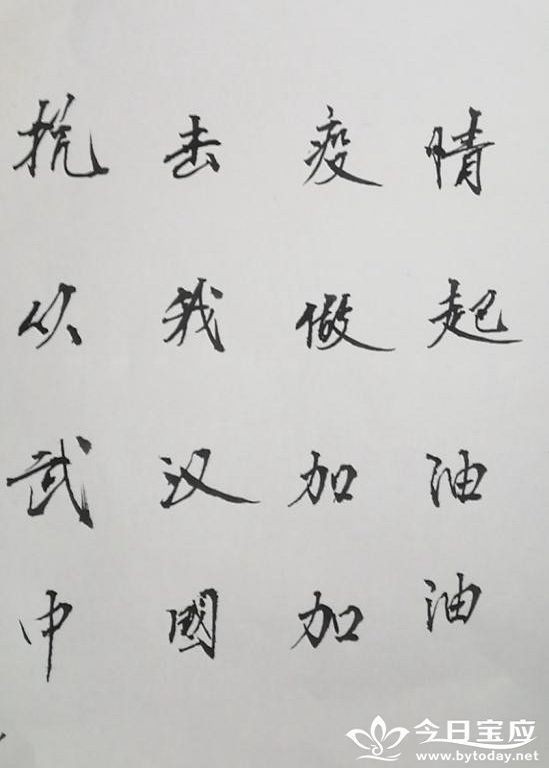 抗击疫情
从我做起
武汉加油
中國加油
今日宝应
www.bytoday.net